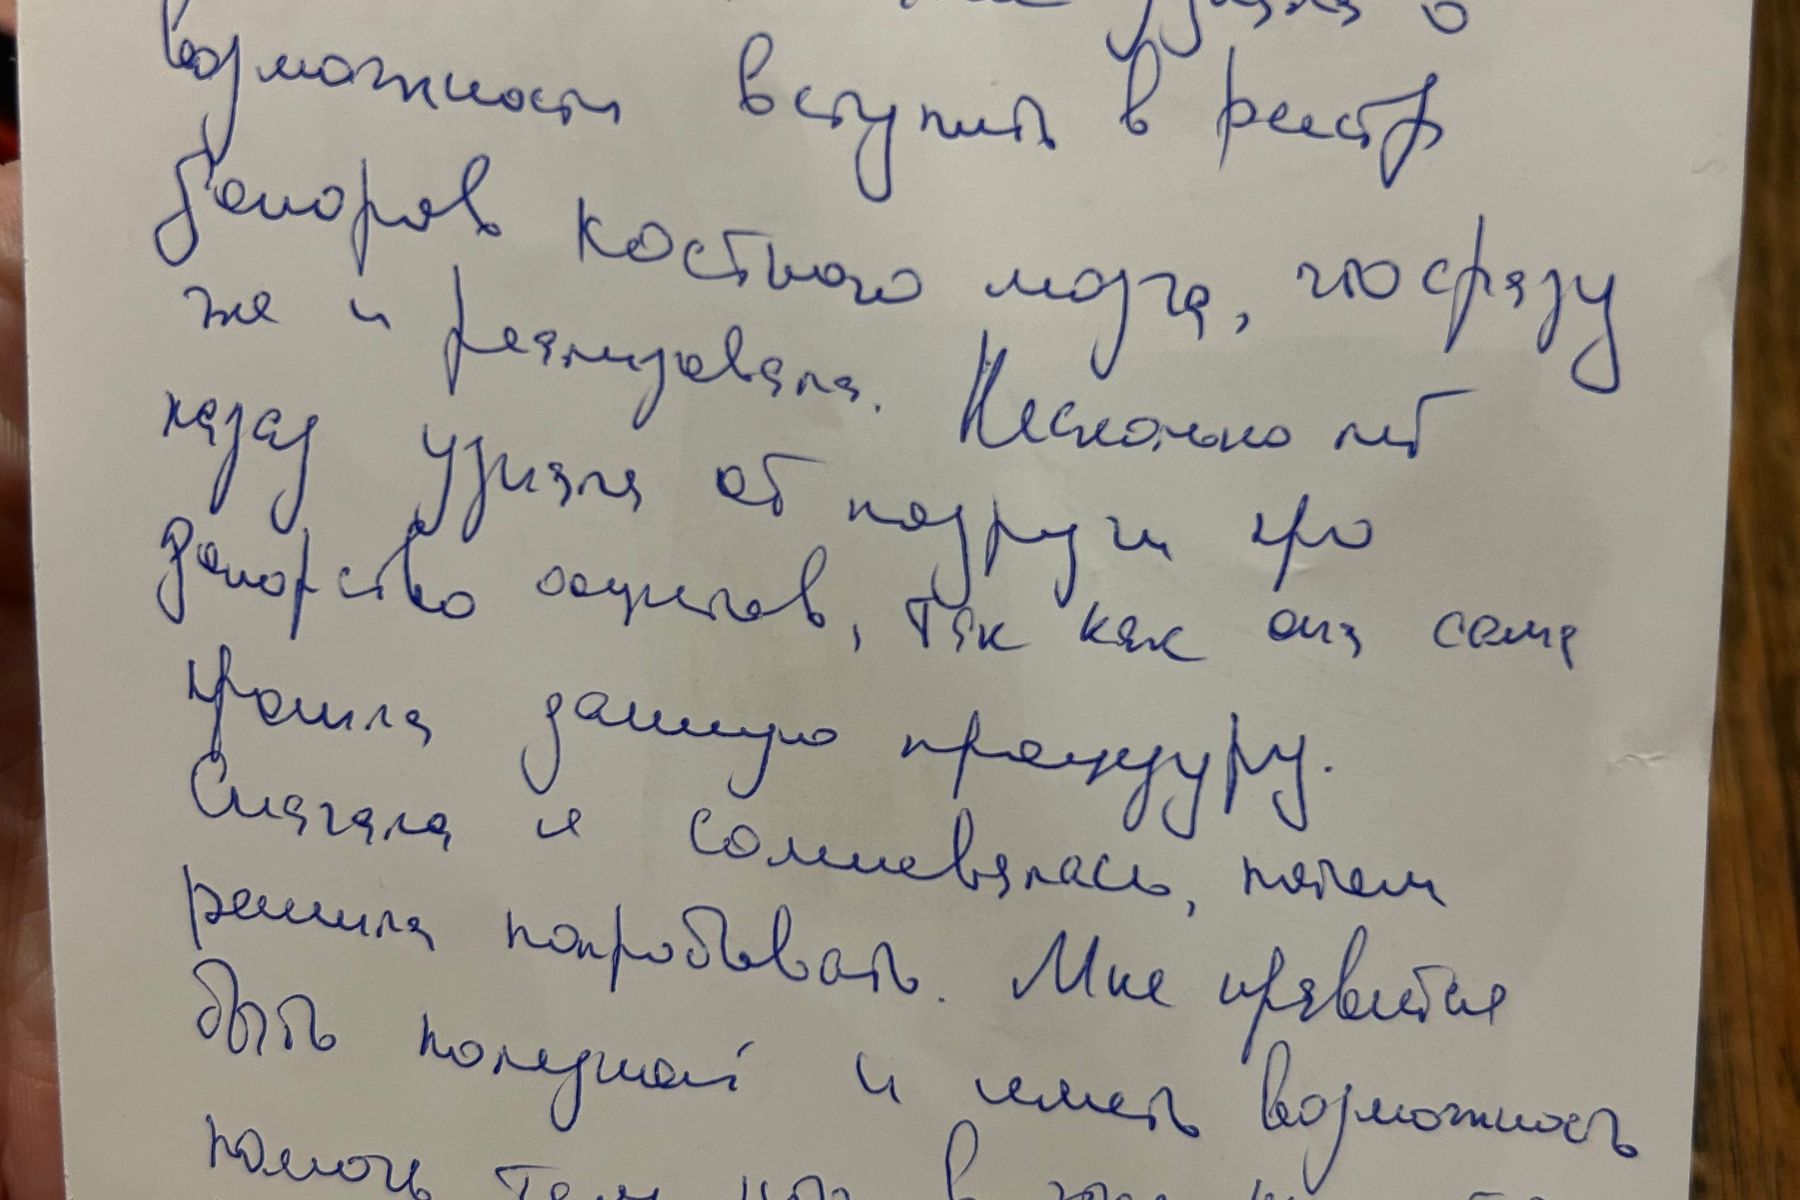 узнала о
возможности вступить в регистр
доноров костного мозга, что сразу
же и реализовала. Несколько лет
назад узнала от подруги про
донорство ооцитов, так как она сама
прошла данную процедуру.
Сначала я сомневалась, потом
решила попробывать. Мне нравится
быть полезной и иметь возможность
помочь тем, кто в